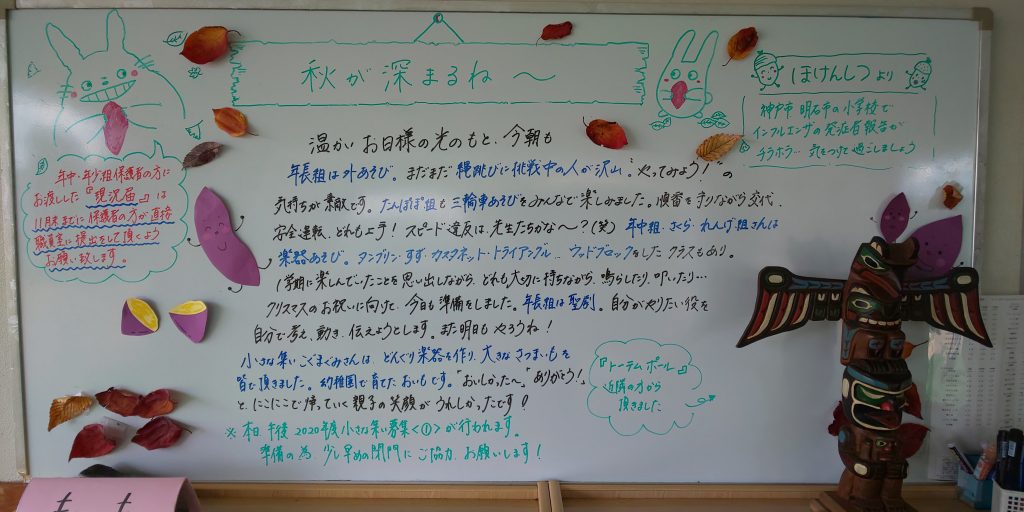 秋が深まるね〜
ほけんしつより
神戸市 明石市の小学校で
インフルエンザの発症者報告が
チラホラ… 気をつけて過ごしましょう
温かいお日様の光のもと、今朝も
年長組は外あそび。まだまだ縄跳びに挑戦中の人が沢山。"やってみよう!"の
気持ちが素敵です。たんぽぽ組も三輪車あそびをみんなで楽しみました。順番を守りながら交代、
安全運転、どれも上手! スピード違反は、先生たちかな〜?(笑) 年中組・さくら・れんげ組さんは
楽器あそび。タンブリン・すず・カスタネット・トライアングル… ウッドブロックをしたクラスもあり。
1学期に楽しんでいたことを思い出しながら、どれも大切に持ちながら、鳴らしたり、叩いたり…
クリスマスのお祝いに向けて、今日も準備をしました。年長組は聖劇。自分がやりたい役を
自分で考え、動き、伝えようとします。また明日もやろうね!
小さな集い・こぐまぐみさんは、どんぐり楽器を作り、大きなさつまいもを
皆で頂きました。幼稚園で育てたおいもです。"おいしかった〜""ありがとう!"
と、にこにこで帰っていく親子の笑顔がうれしかったです!
※本日、午後 2020年度小さな集い募集<①>が行われます。
準備の為、少し早めの閉門にご協力、お願いします!
年中・年少組保護者の方に
お渡しした『現況届』は
11月末までに保護者の方が直接
職員室に提出をして頂くよう
お願い致します。
『トーテムポール』
近隣の方から
頂きました
もも